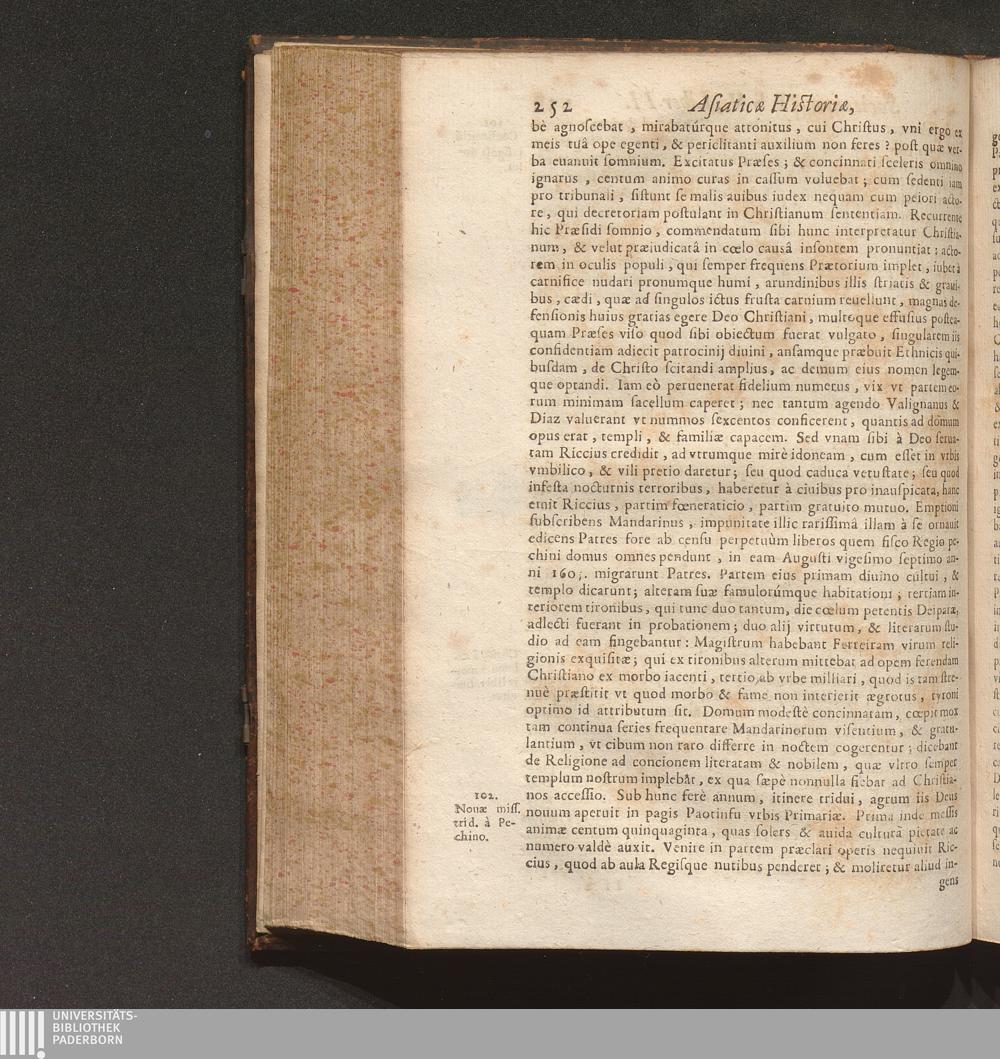 252 Aſiaticæ Hiſtoriæ,
bè agnoſcebat , mirabatúrque attonitus , cui Chriſtus , vni ergo ex
meis tuâ ope egenti , & periclitanti auxilium non feres ? poſt quæ ver-
ba euanuit ſomnium. Excitatus Præſes ; & concinnati ſceleris omnino
ignarus , centum animo curas in caſſum voluebat ; cum ſedenti iam
pro tribunali , ſiſtunt ſe malis auibus iudex nequam cum peiori acto-
re , qui decretoriam poſtulant in Chriſtianum ſententiam. Recurrente
hic Præſidi ſomnio , commendatum ſibi hunc interpretatur Chriſtia-
num , & velut præiudicatâ in cœlo causâ inſontem pronuntiat : acto-
rem in oculis populi , qui ſemper frequens Prætorium implet , iubet à
carnifice nudari pronumque humi , arundinibus illis ſtriatis & graui-
bus , cædi , quæ ad ſingulos ictus fruſta carnium reuellunt , magnas de-
fenſionis huius gratias egere Deo Chriſtiani , multoque effuſius poſtea-
quam Præſes viſo quod ſibi obiectum fuerat vulgato , ſingularem iis
confidentiam adiecit patrocinij diuini , anſamque præbuit Ethnicis qui-
buſdam , de Chriſto ſcitandi amplius , ac demum eius nomen legem-
que optandi. Iam eò peruenerat fidelium numerus , vix vt partem eo-
rum minimam ſacellum caperet ; nec tantum agendo Valignanus &
Diaz valuerant vt nummos ſexcentos conficerent , quantis ad domum
opus erat , templi , & familiæ capacem. Sed vnam ſibi à Deo ſerua-
tam Riccius credidit , ad vtrumque mirè idoneam , cum eſſet in vrbis
vmbilico , & vili pretio daretur ; ſeu quod caduca vetuſtate ; ſeu quod
infeſta nocturnis terroribus , haberetur à ciuibus pro inauſpicata, hanc
emit Riccius , partim fœneraticio , partim gratuito mutuo. Emptioni
ſubſcribens Mandarinus , impunitate illic rariſſimâ illam à ſe ornauit
edicens Patres fore ab cenſu perpetuùm liberos quem fiſco Regio pe-
chini domus omnes pendunt , in eam Auguſti vigeſimo ſeptimo an-
ni 1605. migrarunt Patres. Partem eius primam diuino cultui , &
templo dicarunt ; alteram ſuæ famulorúmque habitationi ; tertiam in-
teriorem tironibus , qui tunc duo tantum, die cœlum petentis Deiparæ,
adlecti fuerant in probationem ; duo alij virtutum , & literarum ſtu-
dio ad eam fingebantur : Magiſtrum habebant Ferreiram virum reli-
gionis exquiſitæ ; qui ex tironibus alterum mittebat ad opem ferendam
Chriſtiano ex morbo iacenti , tertio, ab vrbe milliari , quod is tam ſtre-
nuè præſtitit vt quod morbo & fame non interierit ægrotus , tyroni
optimo id attributum ſit. Domum modeſtè concinnatam , cœpit mox
tam continua ſeries frequentare Mandarinorum viſentium , & gratu-
lantium , vt cibum non raro differre in noctem cogerentur ; dicebant
de Religione ad concionem literatam & nobilem , quæ vltro ſemper
templum noſtrum implebat , ex qua ſæpè nonnulla fiebat ad Chriſtia-
nos acceſſio. Sub hunc ferè annum , itinere tridui , agrum iis Deus
nouum aperuit in pagis Paotinfu vrbis Primariæ. Prima inde meſſis
animæ centum quinquaginta , quas ſolers & auida culturâ pietate ac
numero valdè auxit. Venire in partem præclari operis nequiuit Ric-
cius , quod ab aula Regiſque nutibus penderet ; & moliretur aliud in-
gens
102.
Nouæ miſſ.
trid. à Pe-
chino.
UNIVERSITÄTS-
BIBLIOTHEK
PADERBORN